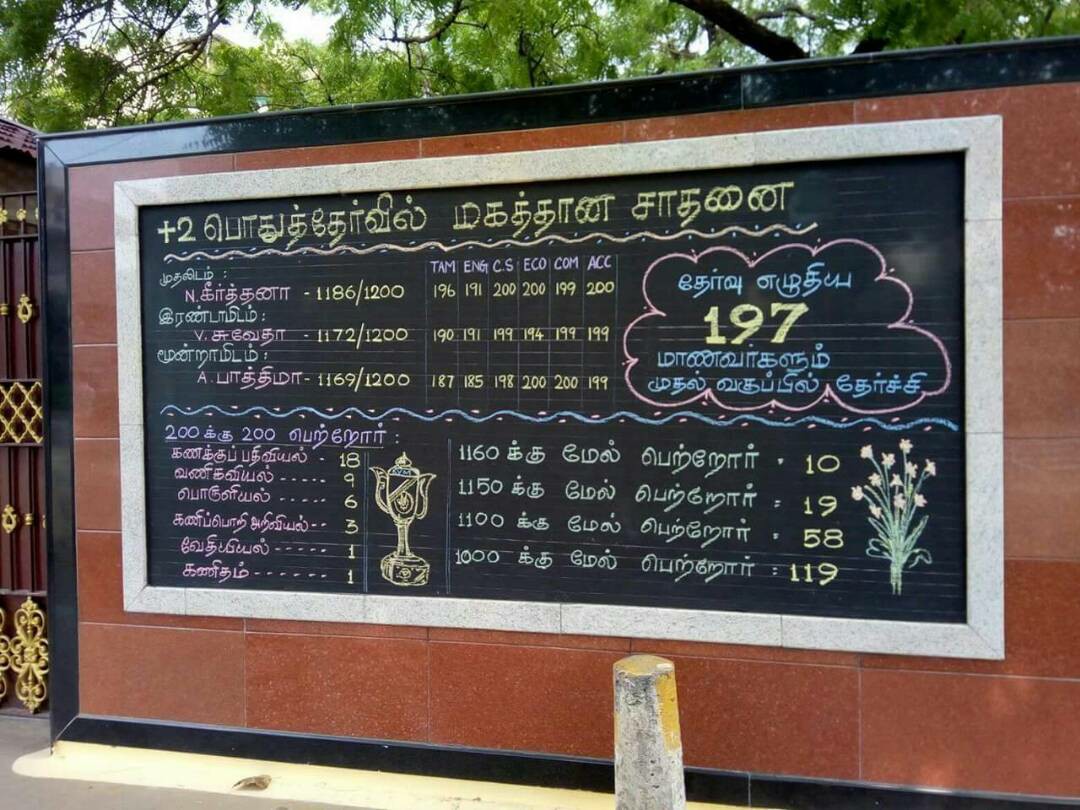 +2 பொதுத்தேர்வில் மகத்தான சாதனை
TAM ENG C.S ECO COM ACC
முதலிடம் :
N.கீர்த்தனா - 1186/1200 196 191 200 200 199 200
இரண்டாமிடம் :
V. சுவேதா - 1172/1200 190 191 199 194 199 199
மூன்றாமிடம் :
A. பாத்திமா - 1169/1200 187 185 198 200 200 199
தேர்வு எழுதிய
197
மாணவர்களும்
முதல் வகுப்பில் தேர்ச்சி
200 க்கு 200 பெற்றோர் :
கணக்குப் பதிவியல் - 18
வணிகவியல் ----- 9
பொருளியல் ----- 6
கணிப்பொறி அறிவியல் -- 3
வேதியியல் ------ 1
கணிதம் ------- 1
1160 க்கு மேல் பெற்றோர் : 10
1150 க்கு மேல் பெற்றோர் : 19
1100 க்கு மேல் பெற்றோர் : 58
1000 க்கு மேல் பெற்றோர் : 119